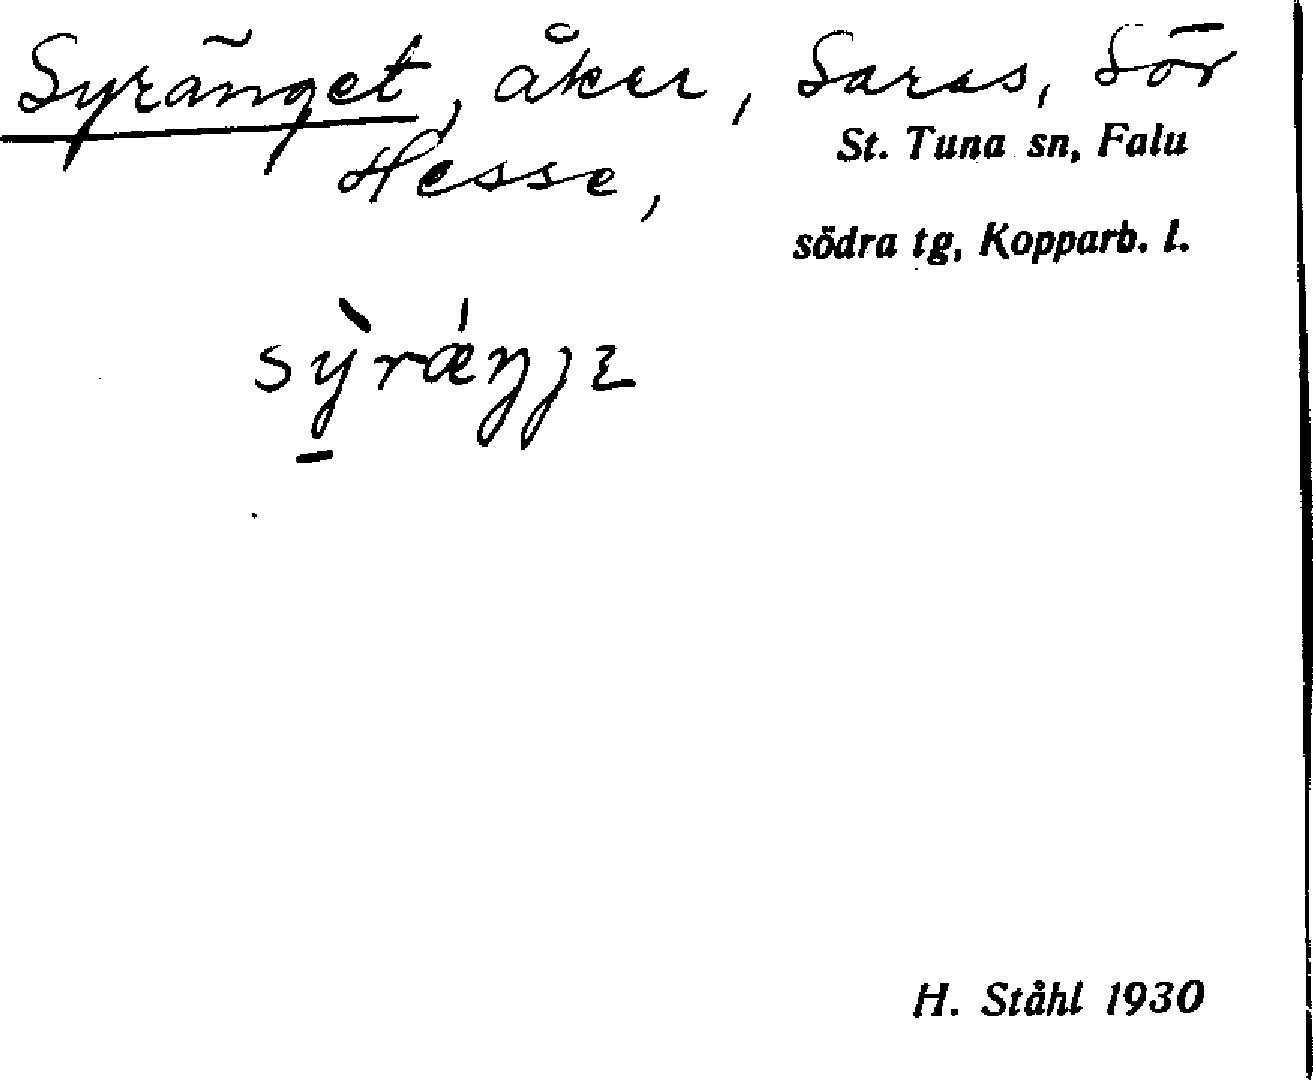 Syränget, åker, Saras, Sör
Hesse,
St. Tuna sn, Falu
södra tg, Kopparb. l.
sỳ̠rǽŋjɛ
H. Ståhl 1930